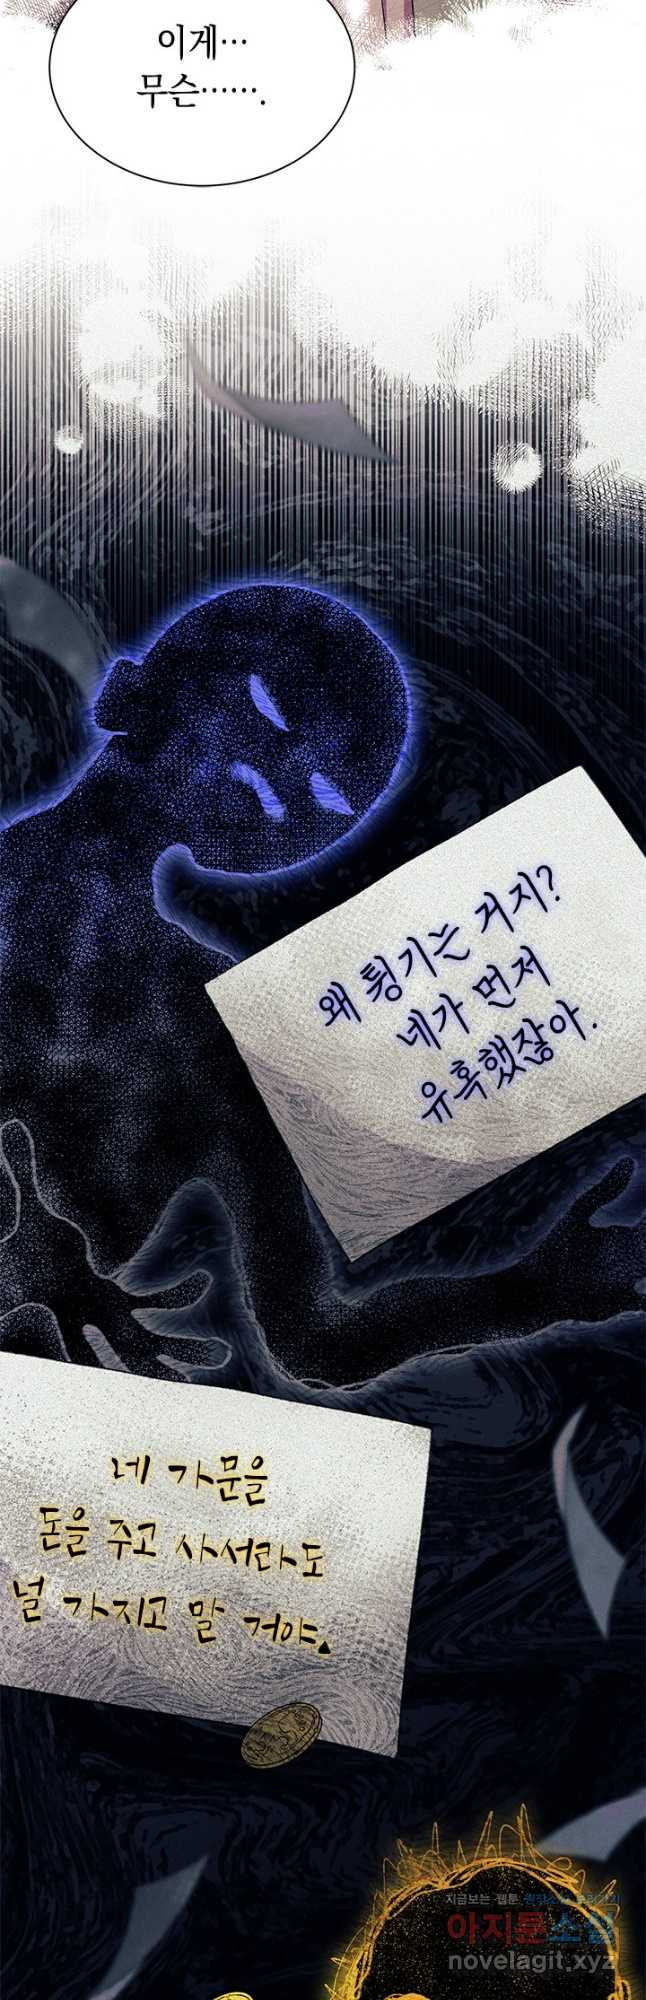 이게…
무슨…….
왜 튕기는 거지?
네가 먼저
유혹했잖아.
네 가문을
돈을 주고 사서라도
널 가지고 말 거야.
지금보는 웹툰
아지툰소설
novelagit.xyz